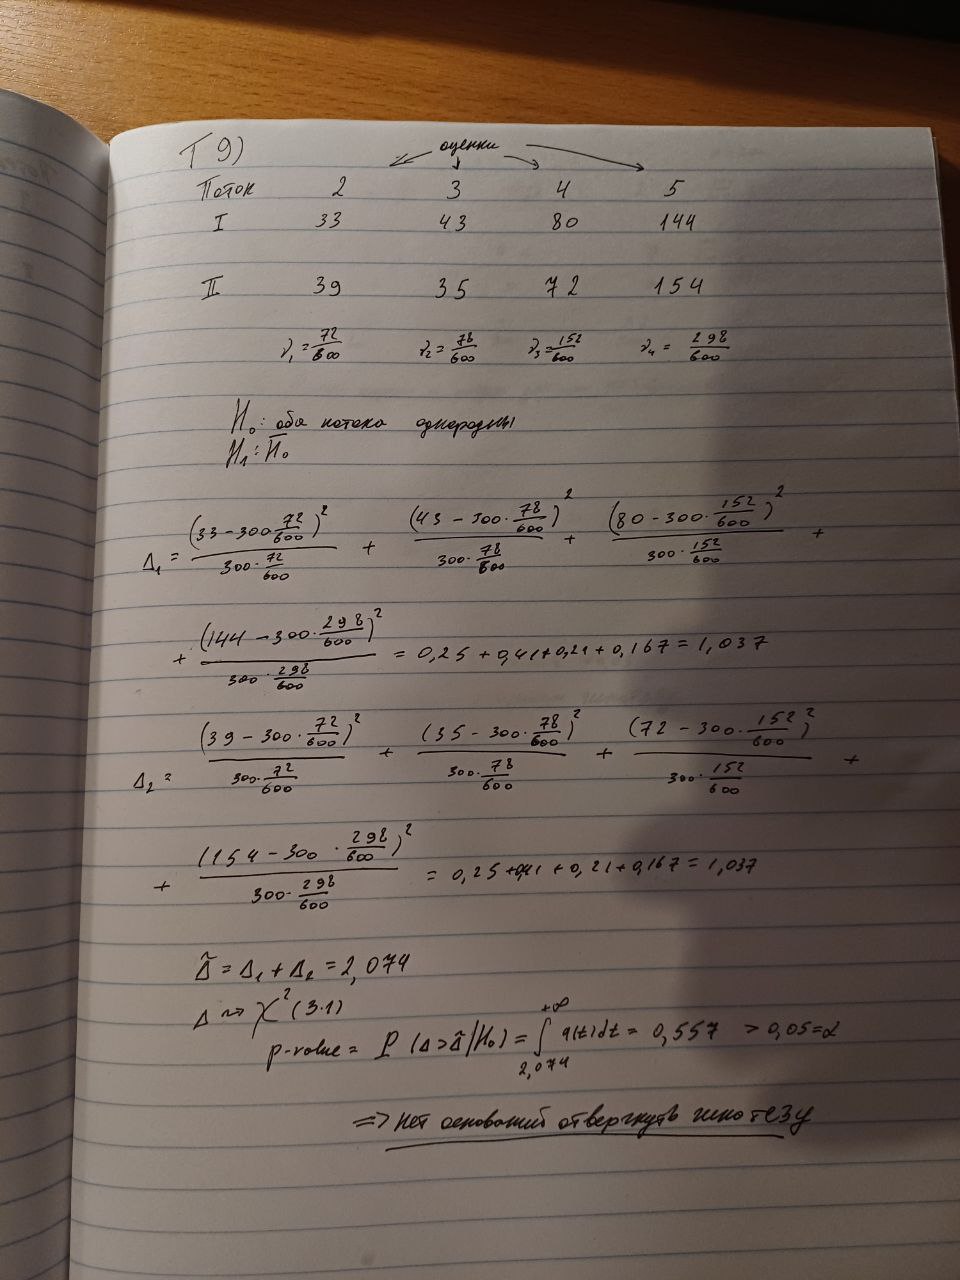 Т 9)
оценки
Поток 2 3 4 5
I 33 43 80 144
II 39 35 72 154
ν₁ = 72/600 ν₂ = 78/600 ν₃ = 152/600 ν₄ = 298/600
H₀: оба потока однородны
H₁: H̅₀
Δ₁ = (33 − 300·72/600)²/(300·72/600) + (43 − 300·78/600)²/(300·78/600) + (80 − 300·152/600)²/(300·152/600) +
+ (144 − 300·298/600)²/(300·298/600) = 0,25 + 0,41 + 0,21 + 0,167 = 1,037
Δ₂ = (39 − 300·72/600)²/(300·72/600) + (35 − 300·78/600)²/(300·78/600) + (72 − 300·152/600)²/(300·152/600) +
+ (154 − 300·298/600)²/(300·298/600) = 0,25 + 0,41 + 0,21 + 0,167 = 1,037
Δ̃ = Δ₁ + Δ₂ = 2,074
Δ ⇝ χ²(3·1)
p-value = P(Δ > Δ̃ | H₀) = ∫_{2,074}^{+∞} q(t)dt = 0,557 > 0,05 = α
=> нет оснований отвергнуть гипотезу